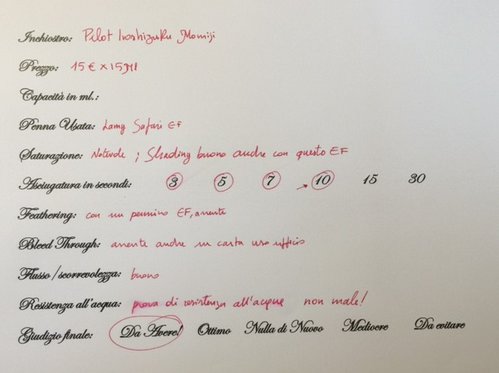 Inchiostro: Pilot Iroshizuku Momiji
Prezzo: 15€ x 15ml
Capacità in ml.:
Penna Usata: Lamy Safari EF
Saturazione: Naturale ; Shading buono anche con questo EF
Asciugatura in secondi: 3 5 7 → 10 15 30
Feathering: con un pennino EF, assente
Bleed Through: assente anche su carta uso ufficio
Flusso / scorrevolezza: buono
Resistenza all'acqua: prova di resistenza all'acqua non male!
Giudizio finale: Da Avere! Ottimo Nulla di Nuovo Mediocre Da evitare